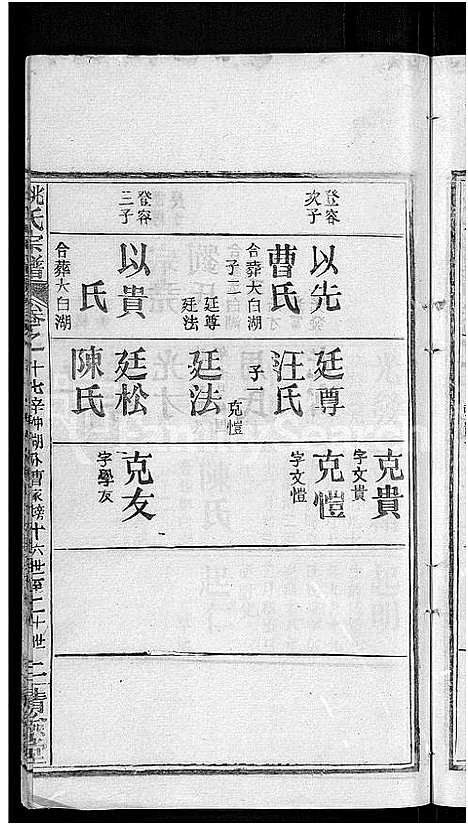 登容次子
以先
曹氏
合葬大白湖
子二
廷尊
廷法
登容三子
以貴
氏
合葬大白湖
廷尊
汪氏
子一
克愷
廷法
廷松
陳氏
克貴
字文貴
克愷
字文愷
克友
字學友
姚氏宗譜
卷之一
十六世至二十世